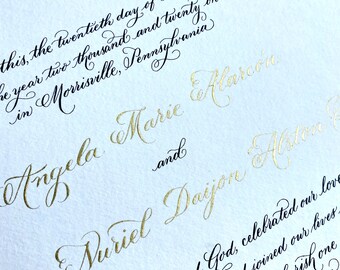 this, the twentieth day of
the year two thousand and twenty
in Morrisville, Pennsylvania
Angela Marie Alarcon
and
Nuriel Daijon
God, celebrated our love
joined our lives